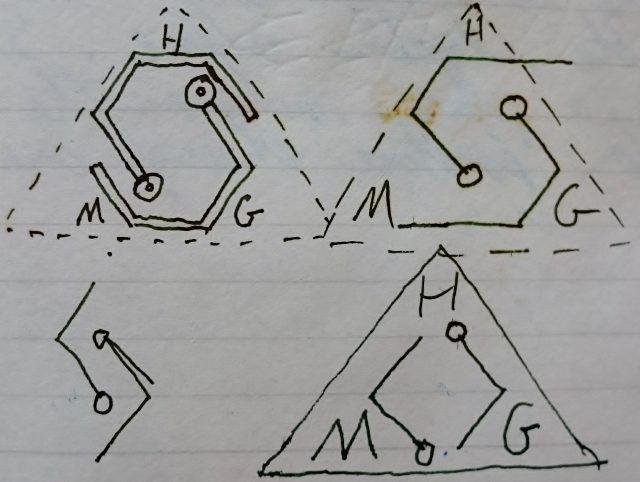 H
M G
H
M G
H
M G